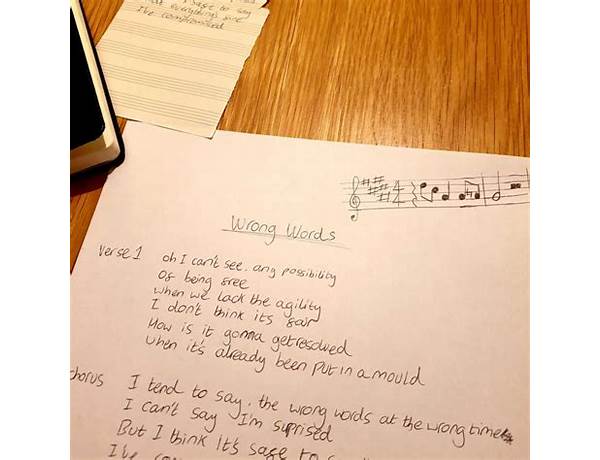 safe to say
that everything's fine
I've compromised
Wrong Words
Verse 1
oh I can't see. any possibility
Of being free
when we lack the agility
I don't think its fair
How is it gonna get resolved
when it's already been put in a mould
chorus
I tend to say, the wrong words at the wrong time
I can't say I'm suprised
But I think It's safe to
I've